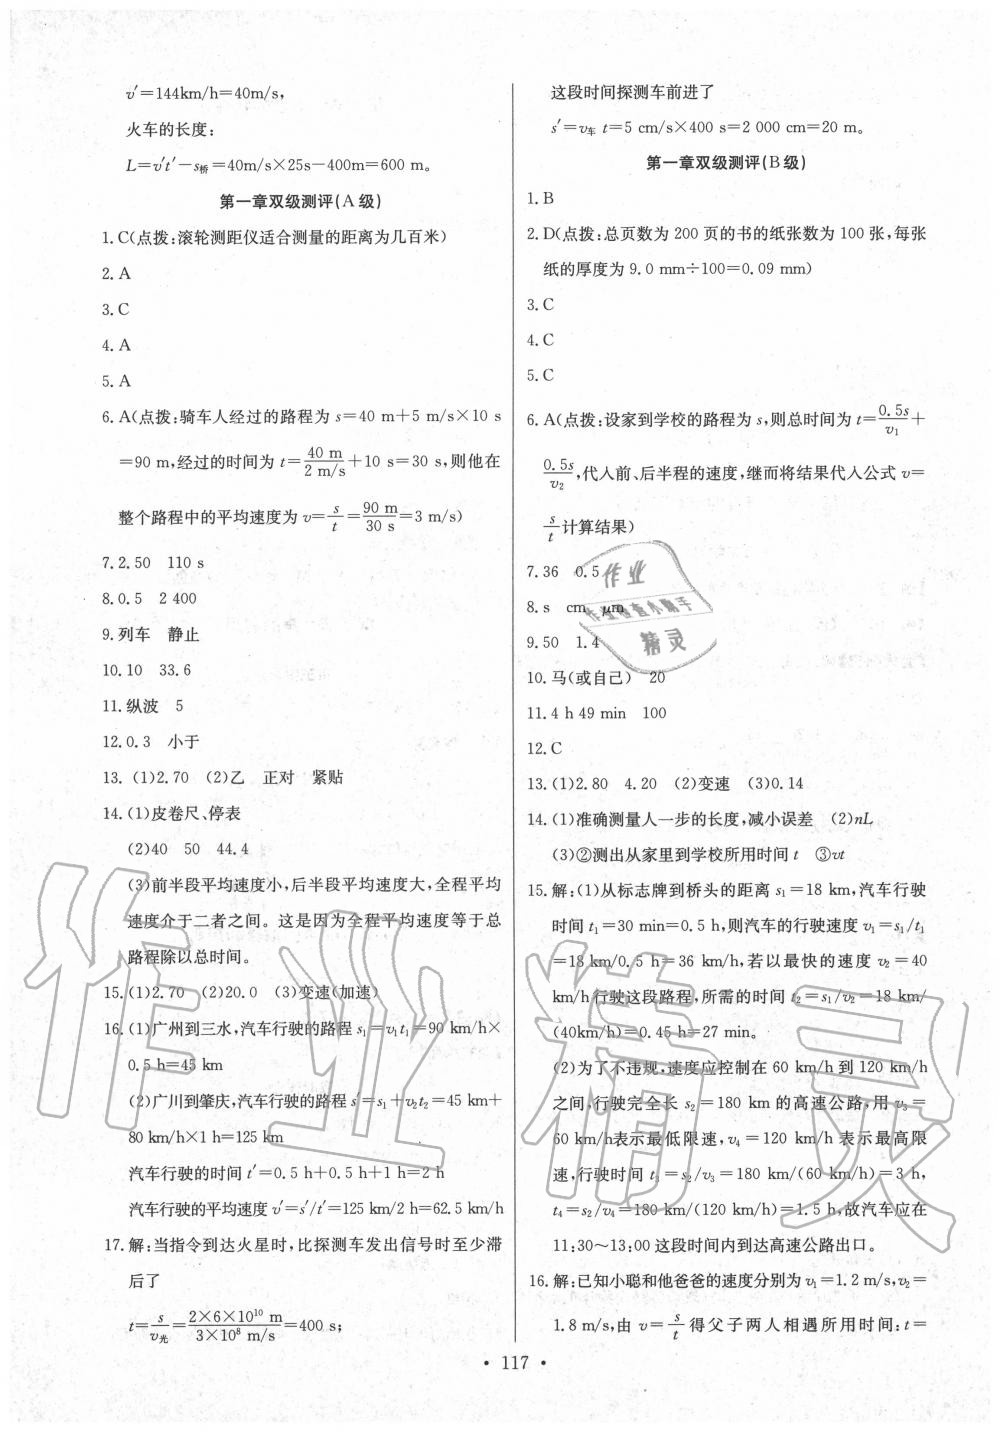 v′=144km/h=40m/s,
火车的长度:
L=v′t′−s桥=40m/s×25s−400m=600 m。
第一章双级测评(A 级)
1.C(点拨:滚轮测距仪适合测量的距离为几百米)
2.A
3.C
4.A
5.A
6.A(点拨:骑车人经过的路程为 s=40 m+5 m/s×10 s
=90 m,经过的时间为 t=40 m/2 m/s+10 s=30 s,则他在
整个路程中的平均速度为 v=s/t=90 m/30 s=3 m/s)
7.2.50 110 s
8.0.5 2 400
9.列车 静止
10.10 33.6
11.纵波 5
12.0.3 小于
13.(1)2.70 (2)乙 正对 紧贴
14.(1)皮卷尺、停表
(2)40 50 44.4
(3)前半段平均速度小,后半段平均速度大,全程平均
速度介于二者之间。这是因为全程平均速度等于总
路程除以总时间。
15.(1)2.70 (2)20.0 (3)变速(加速)
16.(1)广州到三水,汽车行驶的路程 s₁=v₁t₁=90 km/h×
0.5 h=45 km
(2)广川到肇庆,汽车行驶的路程 s′=s₁+v₂t₂=45 km+
80 km/h×1 h=125 km
汽车行驶的时间 t′=0.5 h+0.5 h+1 h=2 h
汽车行驶的平均速度 v′=s′/t′=125 km/2 h=62.5 km/h
17.解:当指令到达火星时,比探测车发出信号时至少滞
后了
t=s/v光=2×6×10¹⁰ m/3×10⁸ m/s=400 s;
这段时间探测车前进了
s′=v车 t=5 cm/s×400 s=2 000 cm=20 m。
第一章双级测评(B 级)
1.B
2.D(点拨:总页数为 200 页的书的纸张数为 100 张,每张
纸的厚度为 9.0 mm÷100=0.09 mm)
3.C
4.C
5.C
6.A(点拨:设家到学校的路程为 s,则总时间为 t=0.5s/v₁+
0.5s/v₂,代人前、后半程的速度,继而将结果代人公式 v=
s/t 计算结果)
7.36 0.5
8.s cm μm
9.50 1.4
10.马(或自己) 20
11.4 h 49 min 100
12.C
13.(1)2.80 4.20 (2)变速 (3)0.14
14.(1)准确测量人一步的长度,减小误差 (2)nL
(3)②测出从家里到学校所用时间 t ③vt
15.解:(1)从标志牌到桥头的距离 s₁=18 km,汽车行驶
时间 t₁=30 min=0.5 h,则汽车的行驶速度 v₁=s₁/t₁
=18 km/0.5 h=36 km/h,若以最快的速度 v₂=40
km/h行驶这段路程,所需的时间 t₂=s₁/v₂=18 km/
(40km/h)=0.45 h=27 min。
(2)为了不违规,速度应控制在 60 km/h 到 120 km/h
之间,行驶完全长 s₂=180 km 的高速公路,用 v₃=
60 km/h表示最低限速,v₄=120 km/h 表示最高限
速,行驶时间 t₃=s₂/v₃=180 km/(60 km/h)=3 h,
t₄=s₂/v₄=180 km/(120 km/h)=1.5 h,故汽车应在
11:30~13:00 这段时间内到达高速公路出口。
16.解:已知小聪和他爸爸的速度分别为 v₁=1.2 m/s,v₂=
1.8 m/s,由 v=s/t 得父子两人相遇所用时间:t=
• 117 •
作业
作业检查小助手
精灵
作业精灵